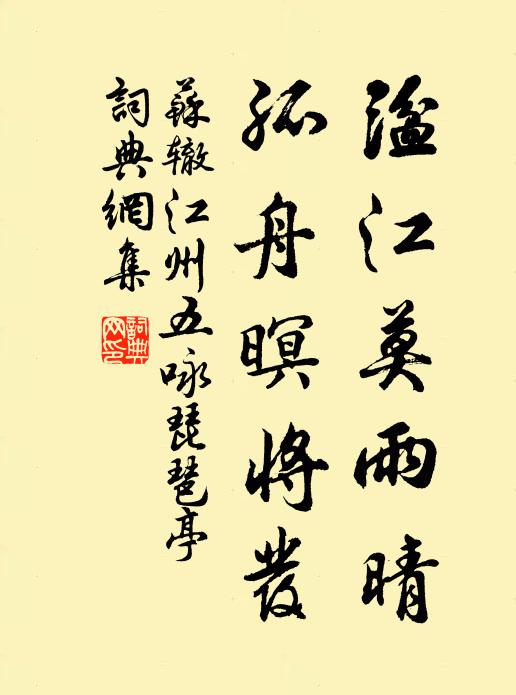 湓江莫雨晴
孤舟暝將發
蘇辙江州五咏琵琶亭
詞典網集
詞典网印